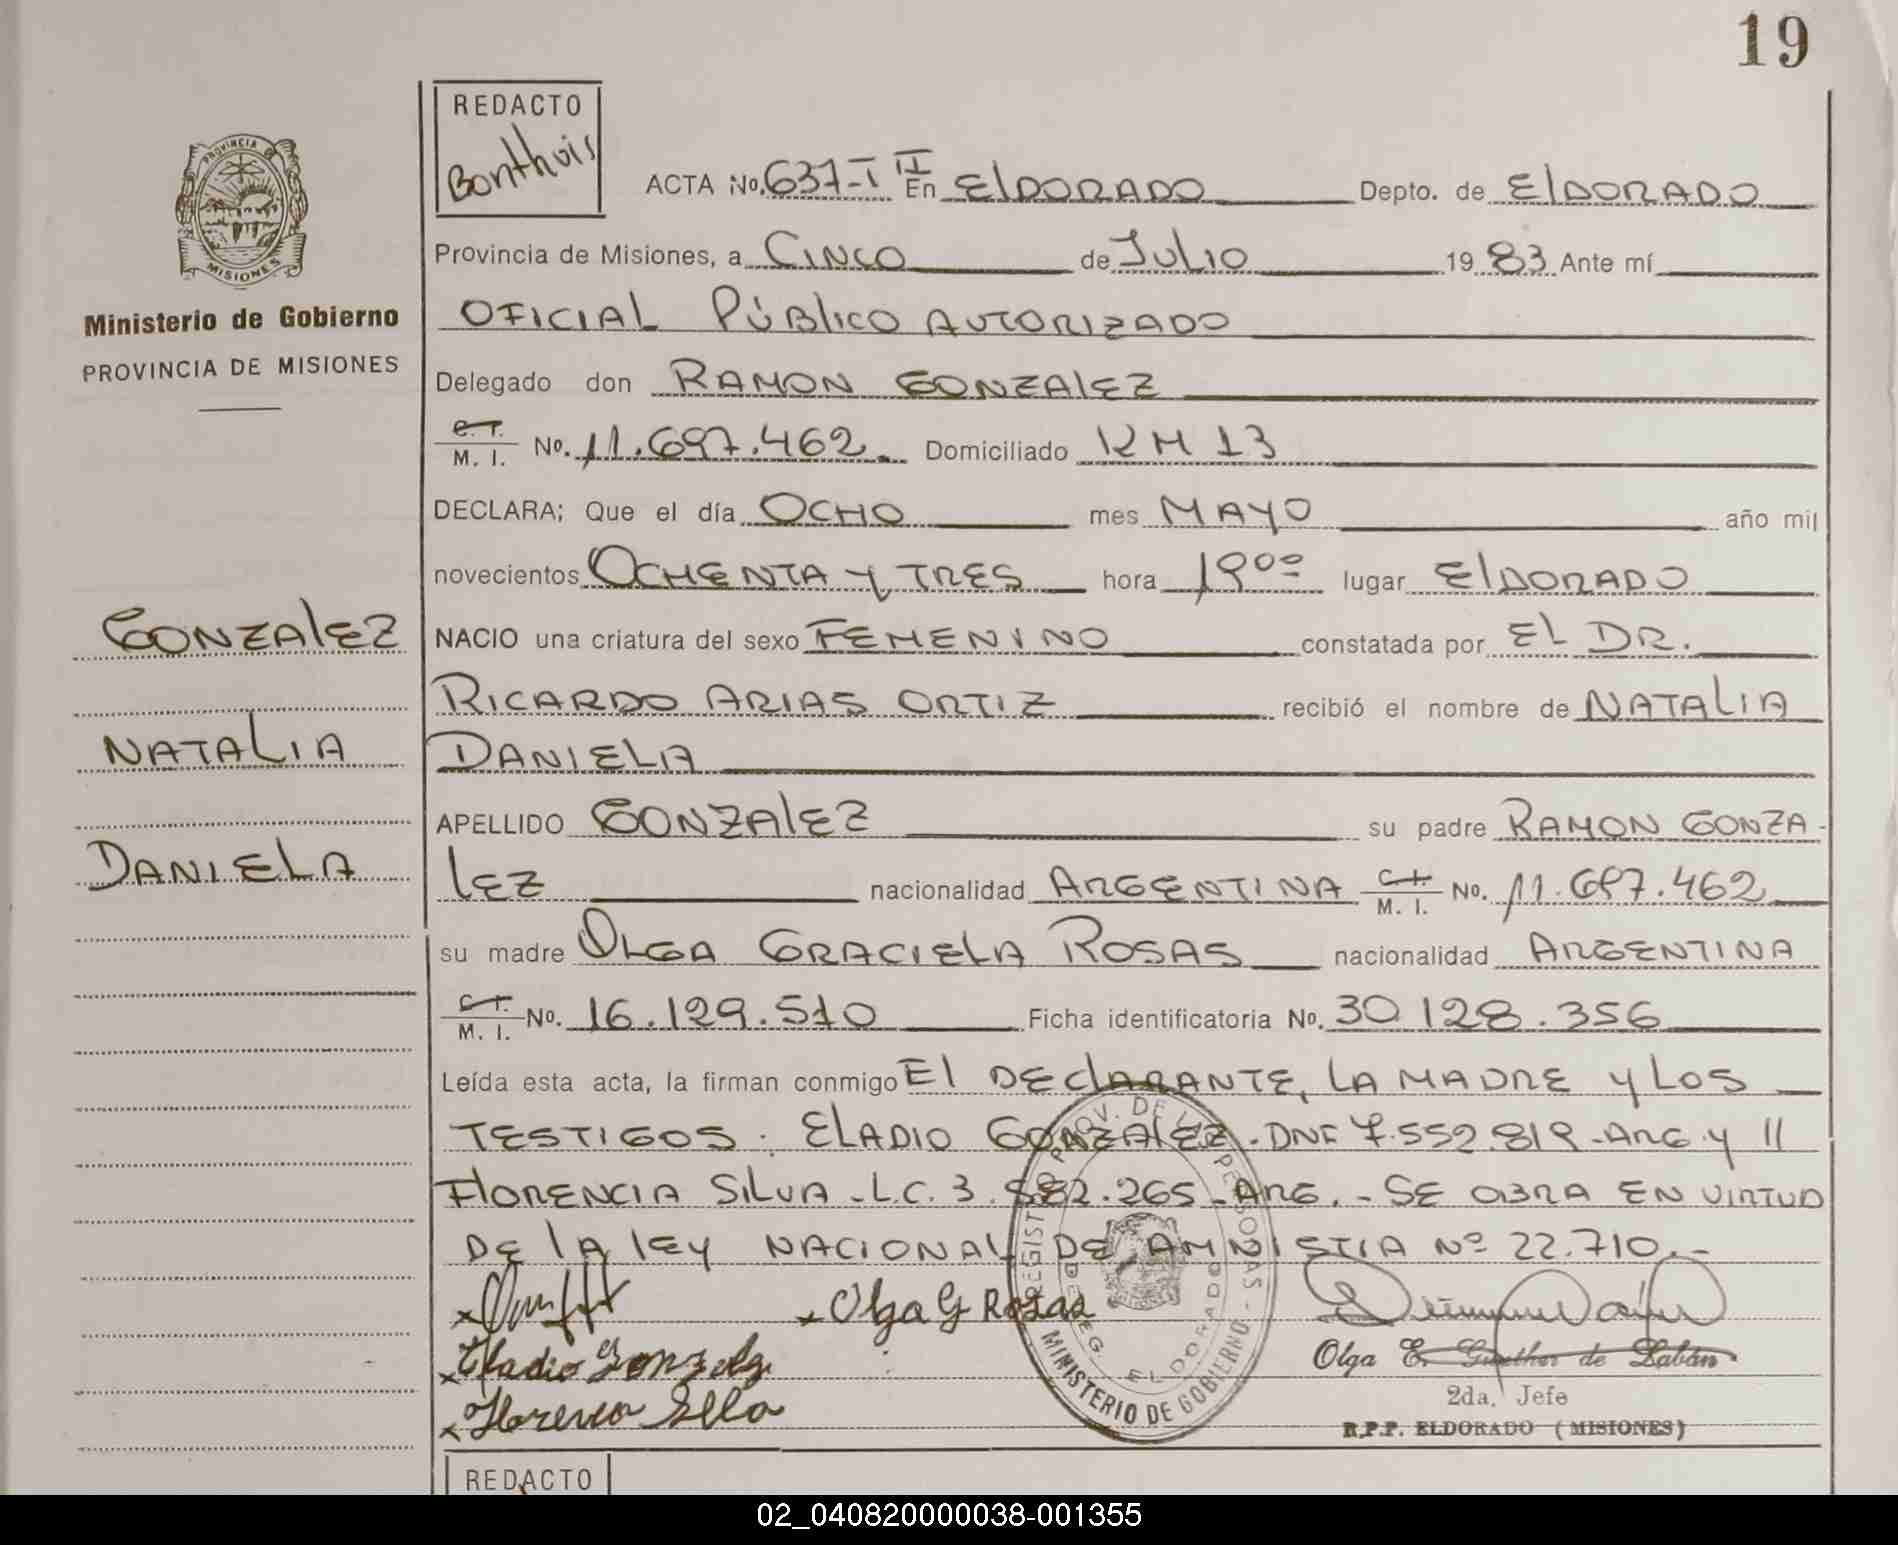 19
REDACTO
Bonthuis
PROVINCIA
MISIONES
Ministerio de Gobierno
PROVINCIA DE MISIONES
ACTA No. 637-I II En ElDORADO Depto. de ElDORADO
Provincia de Misiones, a CINCO de JULIO 19 83 Ante mí
OFICIAL PÚBlICO AUTORIZADO
Delegado don RAMON GONZAlEZ
C. I. / M. I. No. 11.697.462 Domiciliado KM 13
DECLARA; Que el día OCHO mes MAYO año mil
novecientos OCHENTA Y TRES hora 19⁰⁰ lugar ElDORADO
GONZAlEZ
NACIO una criatura del sexo FEMENINO constatada por EL DR.
RICARDO ARIAS ORTIZ recibió el nombre de NATALIA
NATALIA
DANIELA
APELLIDO GONZAlEZ su padre RAMON GONZA-
DANIELA
lEZ nacionalidad ARGENTINA C. I. / M. I. No. 11.697.462
su madre OLGA GRACIELA ROSAS nacionalidad ARGENTINA
C. I. / M. I. No. 16.129.510 Ficha identificatoria No. 30 128.356
Leída esta acta, la firman conmigo El DEClARANTE, LA MADRE Y LOS
TESTIGOS: ELADIO GONZAlEZ.DNI 7.552.819-ARG. y //
FlORENCIA SILVA-L.C. 3.582.265-ARG.-SE OBRA EN VIRTUD
DE lA lEY NACIONAL DE AMNISTIA Nº 22.710.-
x Olga G Rosas
x Eladio Gonzalez
x Florencia Silva
REGISTRO PROV. DE LAS PERSONAS - MINISTERIO DE GOBIERNO
DELEG. ELDORADO
Olga E. Gunther de Labán
2da. Jefe
R.P.P. ELDORADO (MISIONES)
REDACTO
02_040820000038-001355